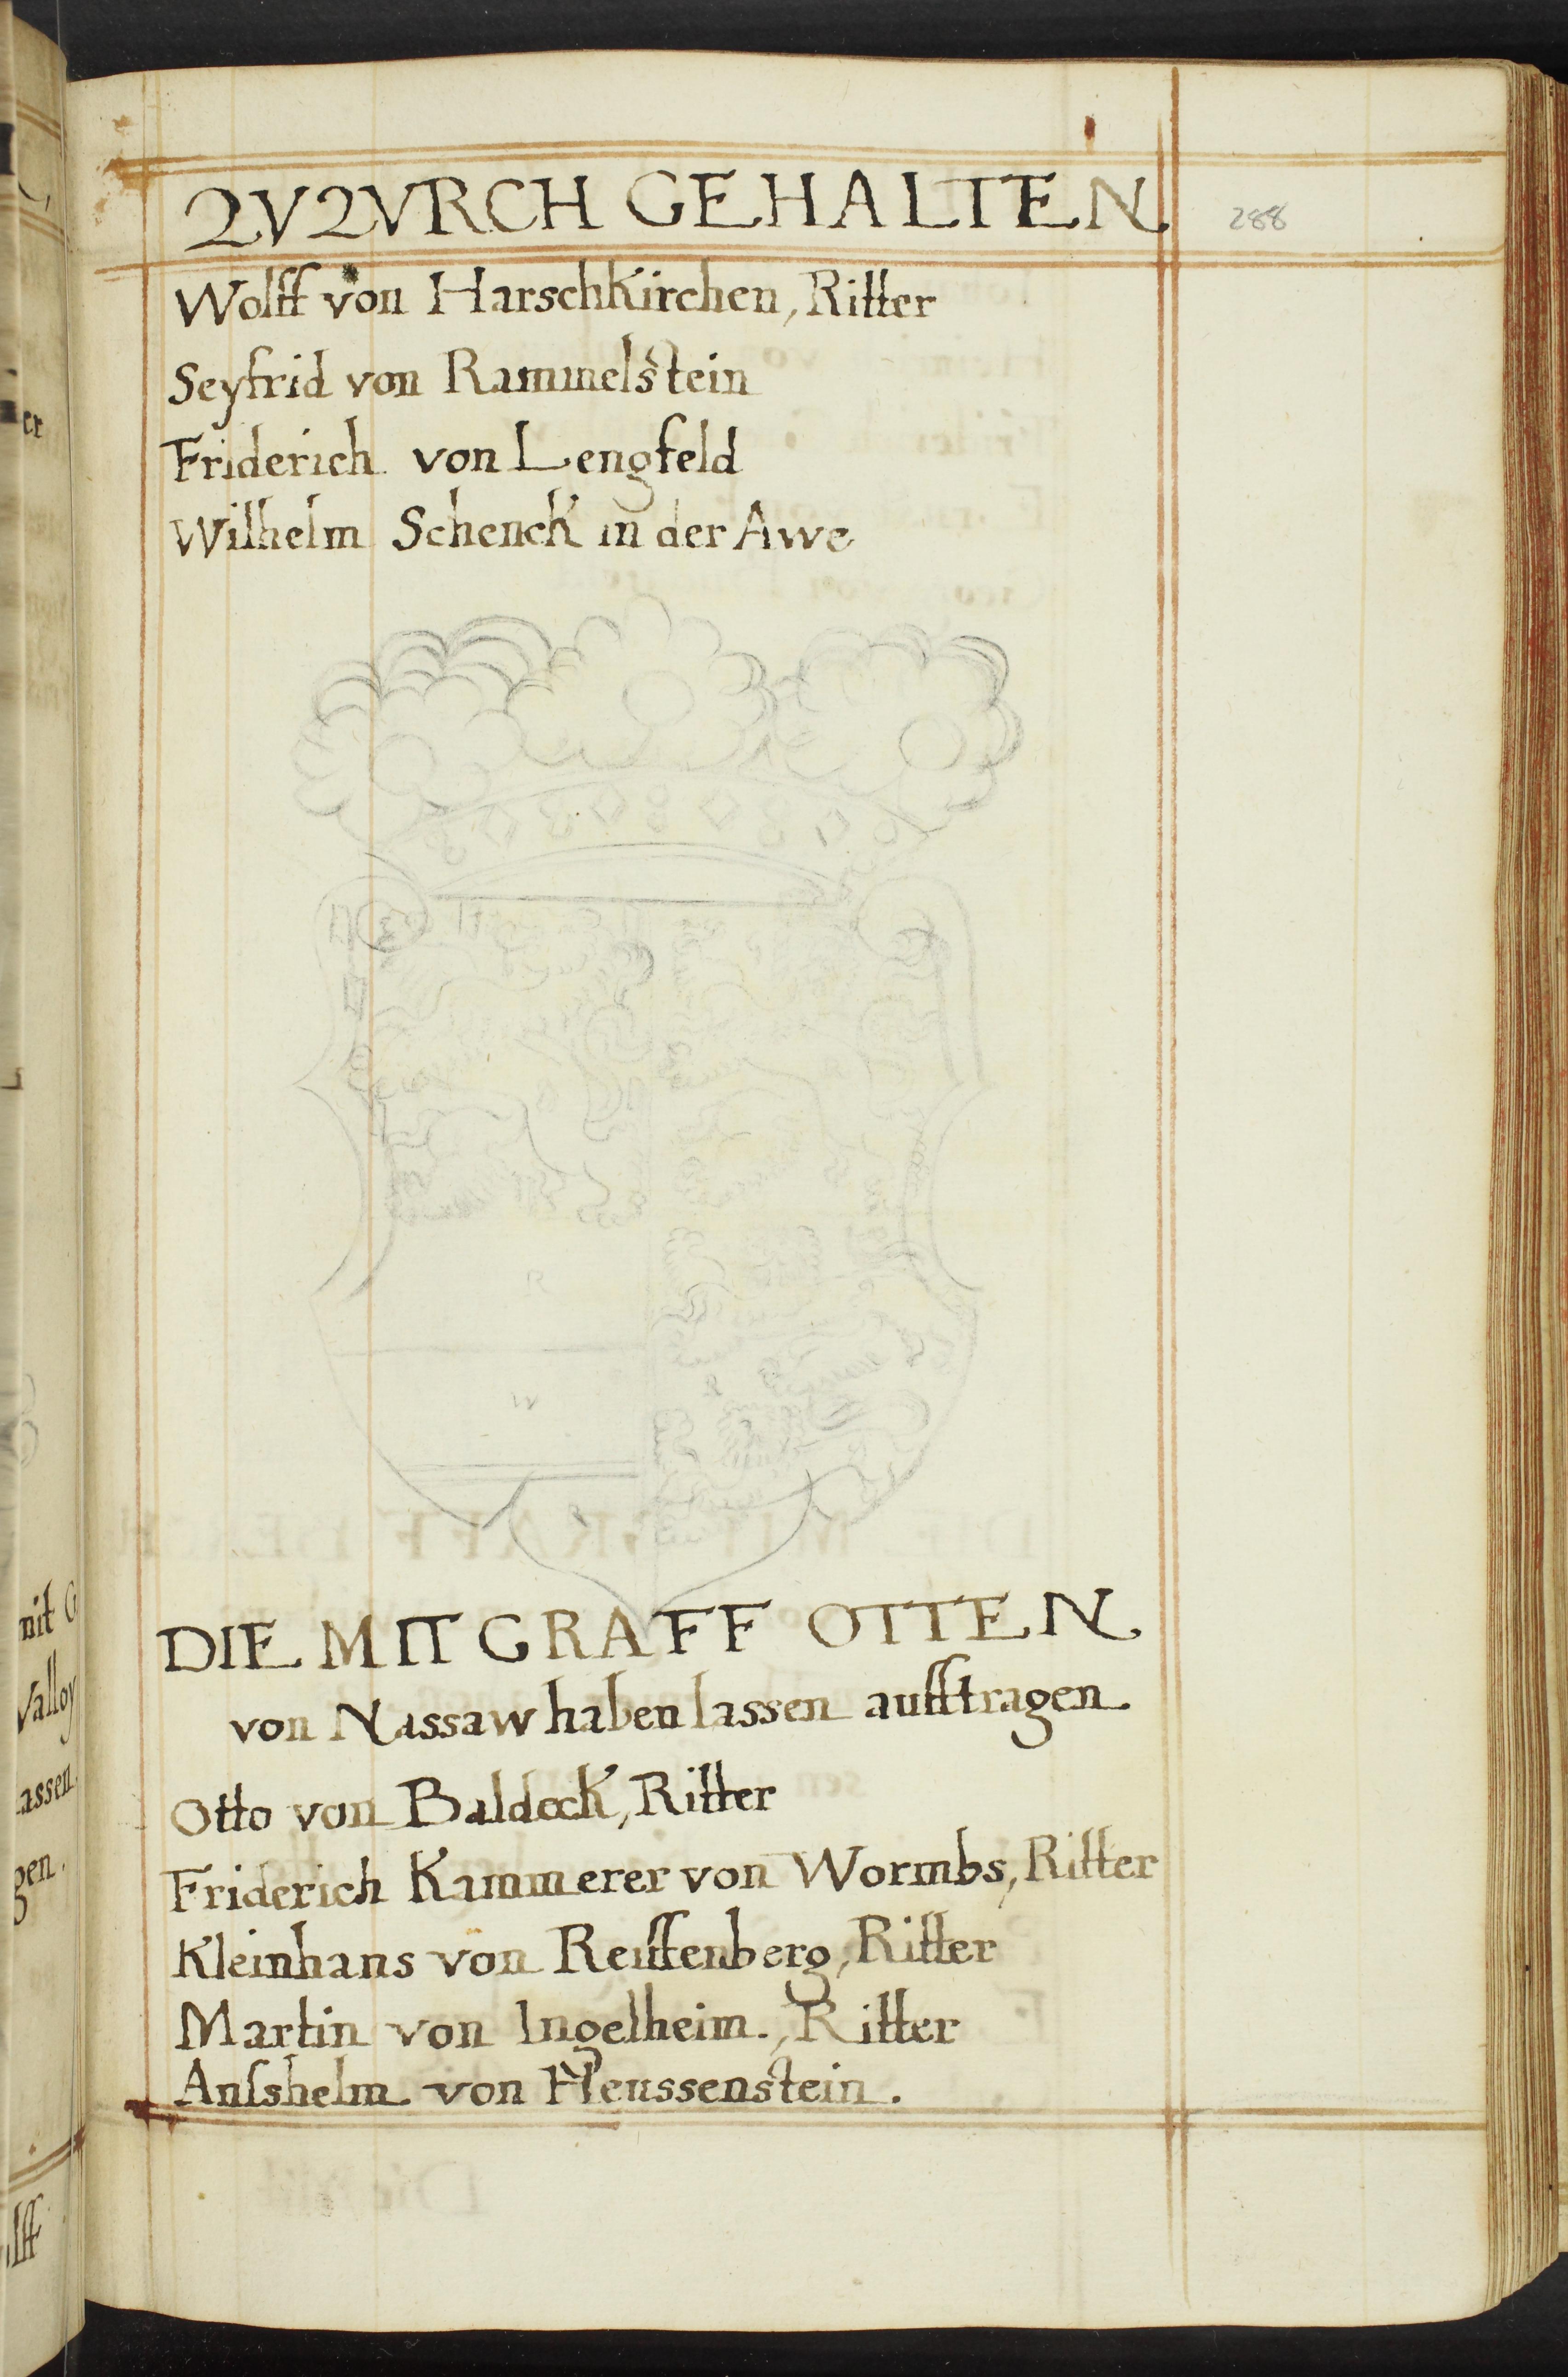 ZV ZVRCH GEHALTEN
288
Wolff von Harschkirchen, Ritter
Seyfrid von Rammelstein
Friderich von Lengfeld
Wilhelm Schenck in der Awe
R
W
DIE MIT GRAFF OTTEN
von Nassaw haben lassen aufftragen
Otto von Baldeck, Ritter
Friderich Kammerer von Wormbs, Ritter
Kleinhans von Reiffenberg, Ritter
Martin von Ingelheim., Ritter
Anſshelm von Heussenstein.